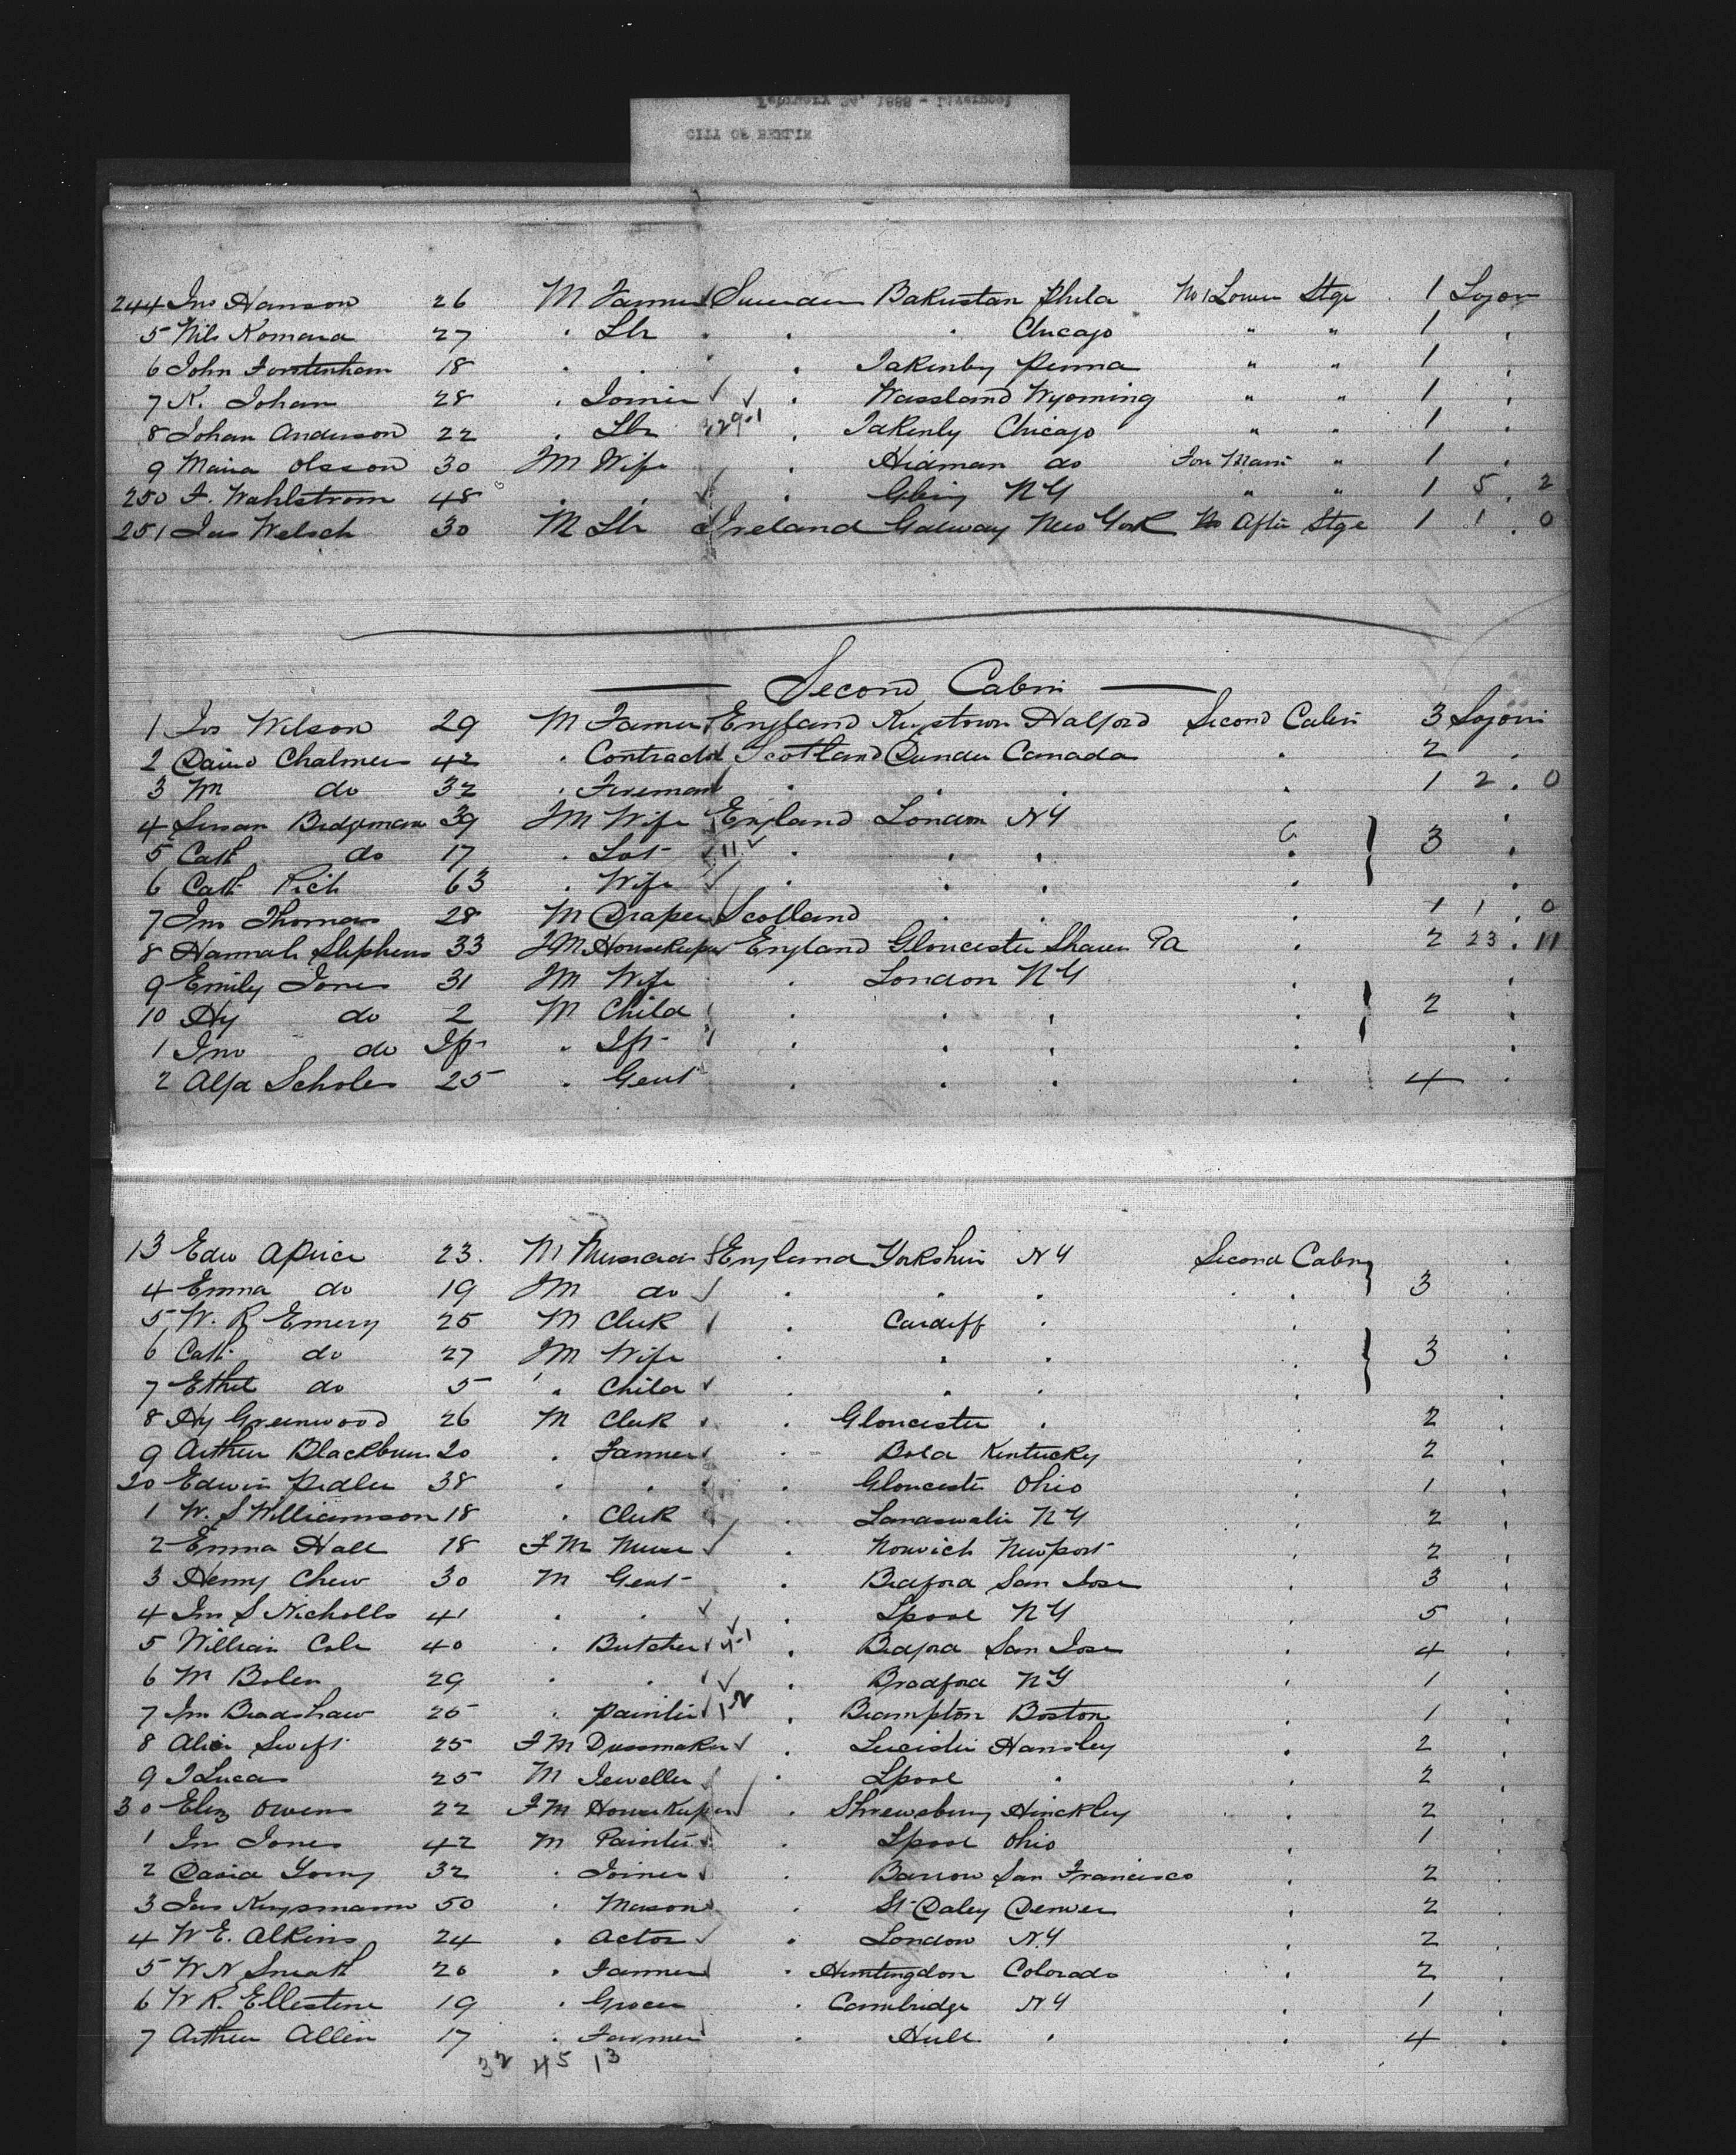 CITY OF BERLIN
244 Jno Hanson 26 M Farmer Sweden Phila No 1 Lower Stge 1 Sojour
5 Nils Komara 27 " Lbr " " " Chicago " " 1 "
6 John Forstenham 18 " " " " Jakenby Penna " " 1 "
7 K. Johan 28 " Joiner " Wassland Wyoming " " 1 "
8 Johan Anderson 22 " Lbr " Jakenby Chicago " " 1 "
9 Maria Olsson 30 FM Wife " Hidman do " 1 "
250 F. Wahlstrom 48 " " " N Y " " 1 5 . 2
251 Jas Welsch 30 M Lbr Ireland Galway New York No Aftr Stge 1 1 . 0
Second Cabin
1 Jos Wilson 29 M Farmer England Halford Second Cabin 3 Sojour
2 David Chalmers 42 " Contractor Scotland Dundee Canada " 2 "
3 Wm do 32 " Fireman " " " 1 2 . 0
4 Susan Bridgman 39 FM Wife England London N Y "
5 Cath do 17 " 11 " " " " 3 "
6 Cath Rich 63 " Wife " " " " "
7 Jno Thomas 28 M Draper Scotland " " " 1 1 . 0
8 Hannah Stephens 33 FM Housekeeper England Gloucester Pa " 2 23 . 11
9 Emily Jones 31 FM Wife " London N Y " "
10 Hy do 2 M Child " " " " 2 "
1 Jno do Ift " Ift " " " " "
2 Alfd Scholes 25 " Gent " " " " 4 "
13 Edw Aprice 23 M England Yorkshire N Y Second Cabin "
4 Emma do 19 FM do " " " " 3 "
5 W. R. Emery 25 M Clerk " Cardiff " " "
6 Cath do 27 FM Wife " " " " 3 "
7 Ethel do 5 " Child " " " " "
8 Hy Greenwood 26 M Clerk " Gloucester " " 2 "
9 Arthur Blackburn 20 " Farmer " Kentucky " 2 "
20 Edwin Pedler 38 " " " Gloucester Ohio " 1 "
1 W. S Williamson 18 " Clerk " N Y " 2 "
2 Emma Hall 18 FM Nurse " Norwich Newport " 2 "
3 Henry Chew 30 M Gent " Bedford San Jose " 3 "
4 Jno S Nicholls 41 " " " Lpool N Y " 5 "
5 William Cole 40 " Butcher " Bedford San Jose " 4 "
6 M Bolen 29 " " " Bradford N Y " 1 "
7 Jno Bradshaw 25 " Painter " Brampton Boston " 1 "
8 Alice Swift 25 FM Dressmaker " Leicester Hansley " 2 "
9 J Lucas 25 M Jeweller " Lpool " " 2 "
30 Eliz Owens 22 FM Housekeeper " Shrewsbury Hinckley " 2 "
1 Jno Jones 42 M Painter " Lpool Ohio " 1 "
2 David Young 32 " Joiner " Barrow San Francisco " 2 "
3 Jas Keysmann 50 " Mason " St Daley Denver " 2 "
4 W E. Alkins 24 " Actor " London N.Y " 2 "
5 W N Sneath 20 " Farmer " Huntingdon Colorado " 2 "
6 W R. Ellestine 19 " Grocer " Cambridge N Y " 1 "
7 Arthur Allen 17 " Farmer " Hull " " 4 "
32 45 13